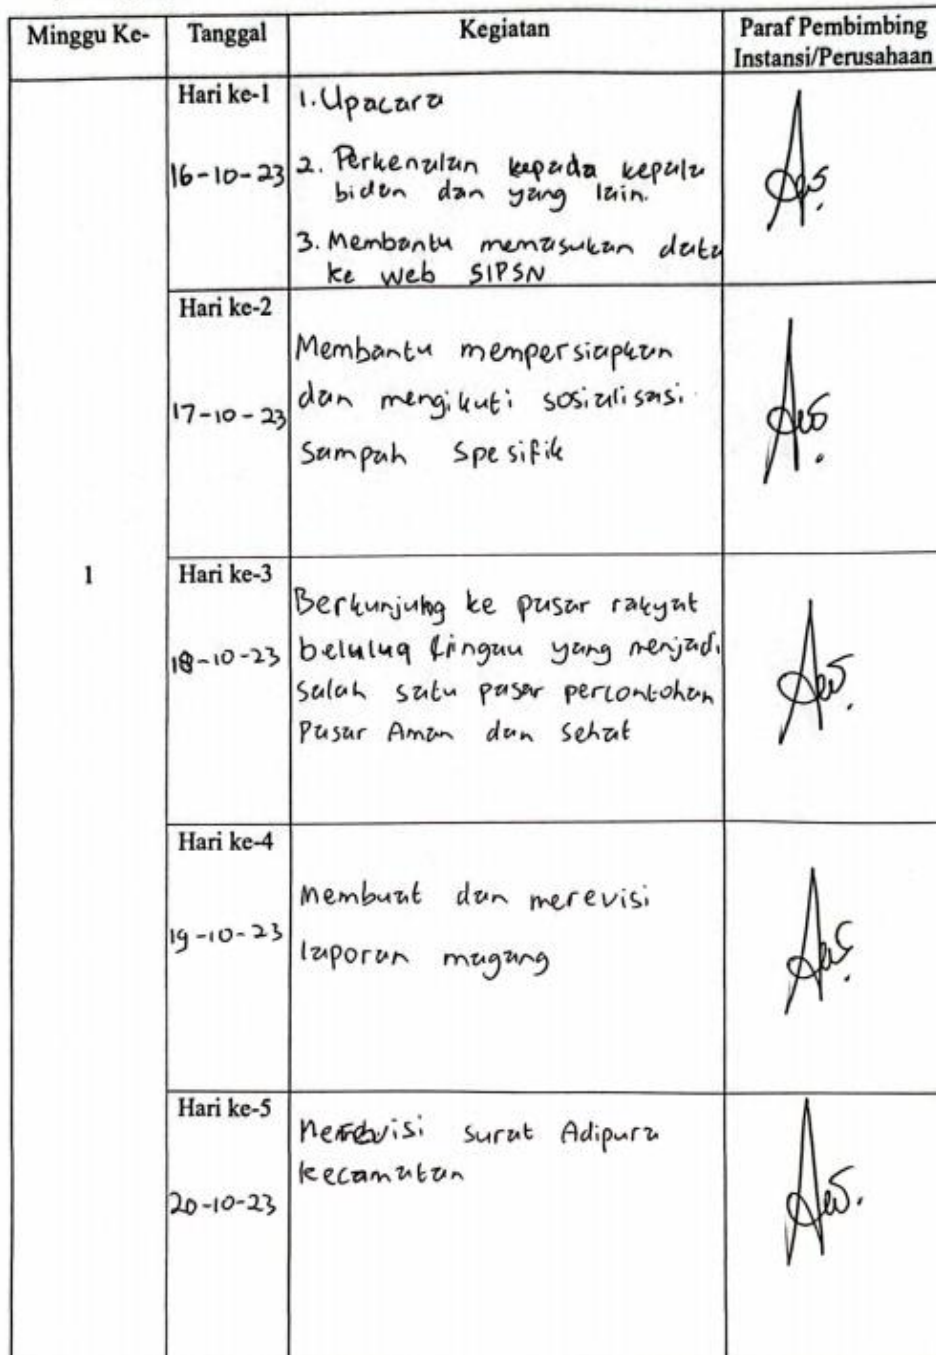 Minggu Ke-
Tanggal
Kegiatan
Paraf Pembimbing
Instansi/Perusahaan
1
Hari ke-1
16-10-23
1. Upacara
2. Perkenalan kepada kepala
bidan dan yang lain.
3. Membantu memasukan data
ke web SIPSN
Hari ke-2
17-10-23
Membantu mempersiapkan
dan mengikuti sosialisasi
Sampah Spesifik
Hari ke-3
18-10-23
Berkunjung ke pasar rakyat
yang menjadi
salah satu pasar percontohan
Pasar Aman dan Sehat
Hari ke-4
19-10-23
Membuat dan merevisi
laporan magang
Hari ke-5
20-10-23
Merevisi surat Adipura
kecamatan